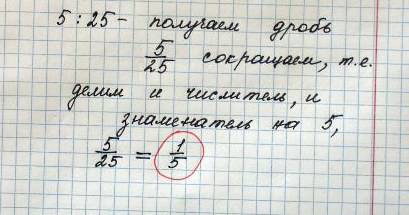 5 : 25 - получаем дробь
5/25 сокращаем, т.е.
делим и числитель, и
знаменатель на 5,
5/25 = 1/5